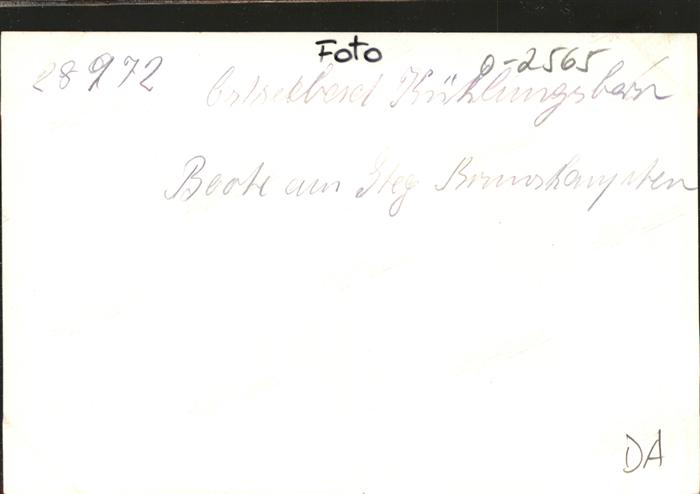 Foto
28972 Ostseebad Kühlungsborn 0-2565
Boote am Steg Brunshaupten
DA